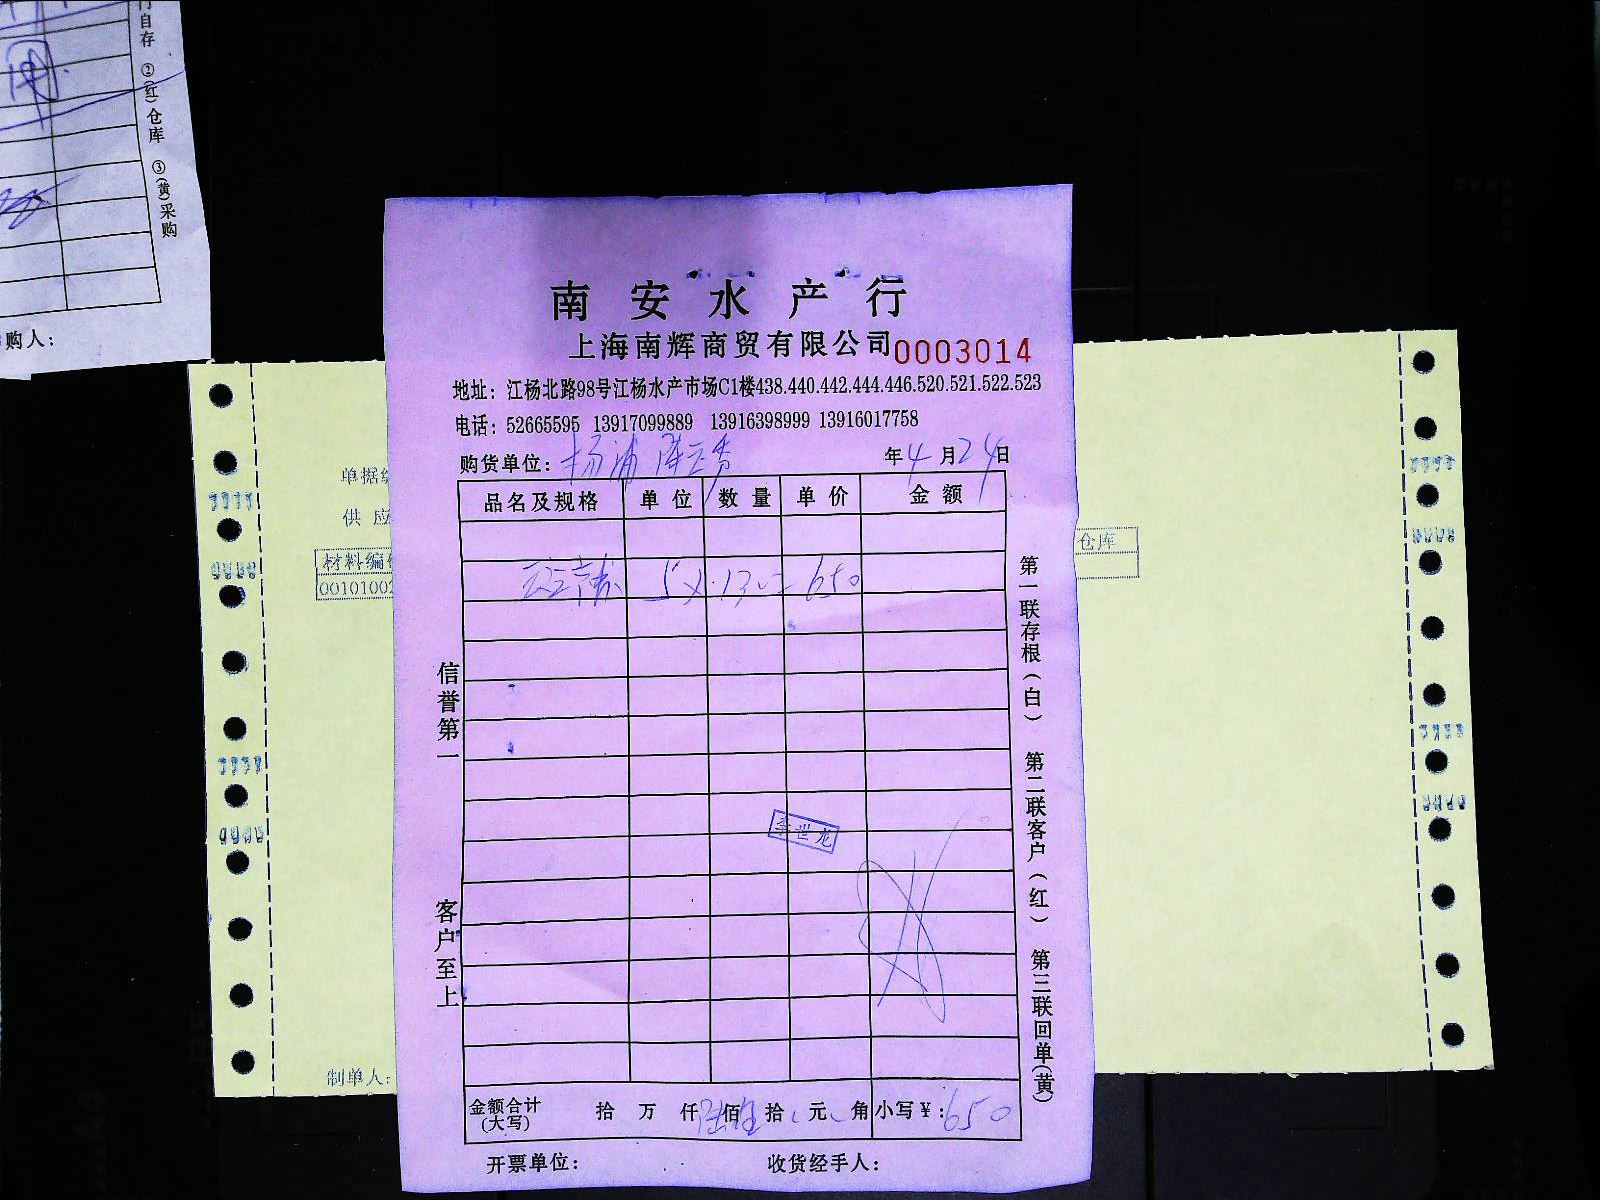 门自存 ②(红)仓库 ③(黄)采购
购人：
南安水产行
上海南辉商贸有限公司 0003014
地址：江杨北路98号江杨水产市场C1楼438.440.442.444.446.520.521.522.523
电话：52665595 13917099889 13916398999 13916017758
购货单位：杨浦
年4月24日
品名及规格 单位 数量 单价 金额
5×130=650
信誉第一 客户至上
第一联存根(白) 第二联客户(红) 第三联回单(黄)
李世龙
金额合计(大写) 拾 万 仟 陆佰 拾 元 角 小写￥：650
开票单位： 收货经手人：
单据
供应
材料编
0010100
仓库
制单人：